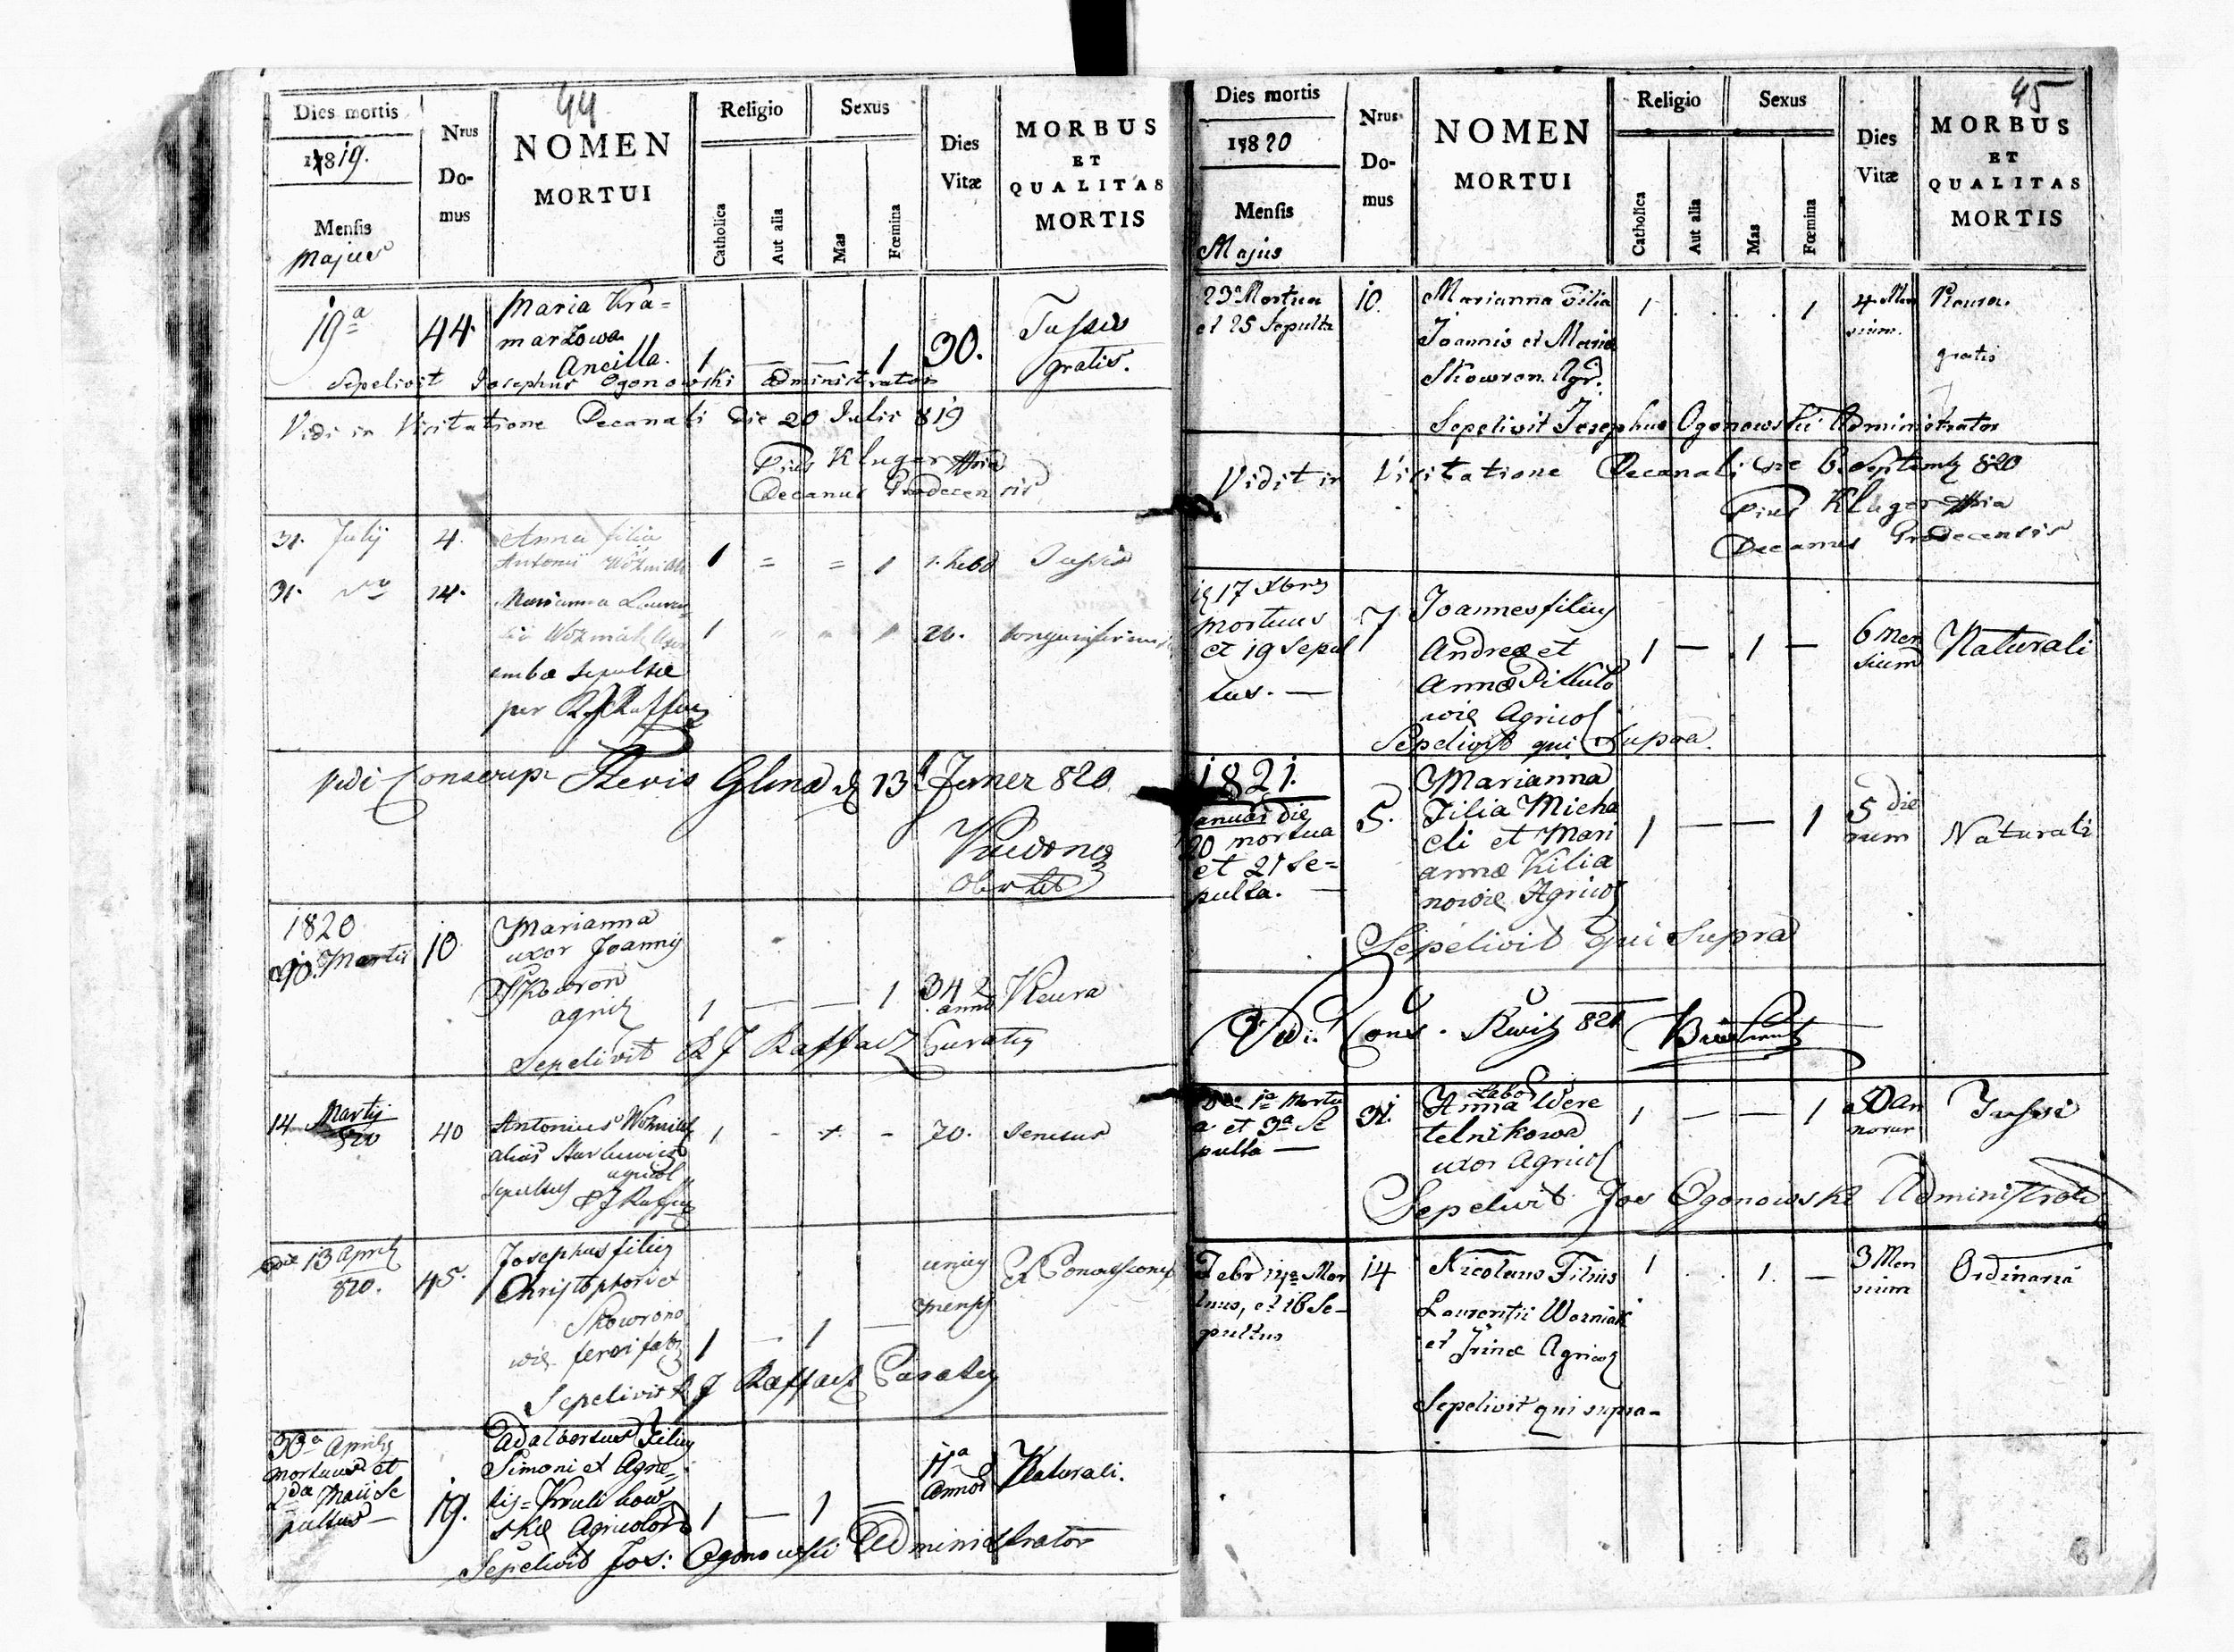 44
Dies mortis
1819.
Mensis
Majus
Nrus
Do-
mus
NOMEN
MORTUI
Religio
Catholica
Aut alia
Sexus
Mas
Fœmina
Dies
Vitæ
MORBUS
ET
QUALITAS
MORTIS
19a 44. Maria Kra=
marzowa
Ancilla. 1 — — 1 30. Tussis
gratis.
Sepelivit Josephus Ogonowski Administrator
Vidi in Visitatione Decanali die 20 Julii 819
Pius Kluger
Decanus Grodecensis
31. July 4. Anna filia
Antonii Wozniak 1 = = 1 1. hebd Tussis
31. 14. Marianna Lauren
Wozniak 1 " " 1 26.
ambæ sepultæ
per
Vidi Conscrip Revis Glina 13 Jenner 820
1820
10. Martii 10 Marianna
uxor Joannis
Skowron
agric 1 — — 1 34
anno
Sepelivit R J Raffacz Curatus
14. Martij
820 40 Antonius Wozniak
alias
agricol
sepultus 1 - + - 70. senectus
Die 13 Aprilis
820. 45. Josephus filius
Christophori et
Skowrono
wie 1 — 1 — unius
mensis
Sepelivit R J Raffacz Curatus
30a Aprilis
mortuus et
2da Maii Se
pultus — 19. Adalbertus Filius
Simoni et Agne=
tis=
skie Agricolor 1 — 1 — 11a
Annor Naturali.
Sepelivit Jos: Ogonowski Administrator
45
Dies mortis
1820
Mensis
Majus
Nrus
Do-
mus
NOMEN
MORTUI
Religio
Catholica
Aut alia
Sexus
Mas
Fœmina
Dies
Vitæ
MORBUS
ET
QUALITAS
MORTIS
23a Mortua
et 25 Sepulta 10. Marianna Filia
Joannis et Maria
Skowron. Agr. 1 . . . 1 4 Men
sium.
gratis
Sepelivit Josephus Ogonowski Administrator
Vidit in Visitatione Decanali die 6. Septemb 820
Pius Kluger
Decanus Grodecensis
17 Xbris
mortuus
et 19 Sepul
tus. — 7 Joannes filius
Andreæ et
Annæ Pikulo
wie Agricol 1 — 1 — 6 men
sium Naturali
Sepelivit qui Supra.
1821.
anuar die
20 mortua
et 21 Se=
pulta. — 5. Marianna
Filia Micha
eli et Mari
annæ Kilia
nowie Agricol 1 — — 1 5 die
rum Naturali
Sepelivit qui Supra
Vidi. Cons. 821
1a Mortu
a et 3a Se
pulta — 31. Anna Were
telnikowa
uxor Agricol 1 — — 1 50 an
norum Tussi
Sepelivit Jos Ogonowski Administrato
Febr 14a Mor
tuus, et 16 Se-
pultus 14 Nicolaus Filius
Laurentii Wozniak
et Irinæ Agricol 1 . . 1. — 3 Men
sium Ordinaria
Sepelivit qui supra-